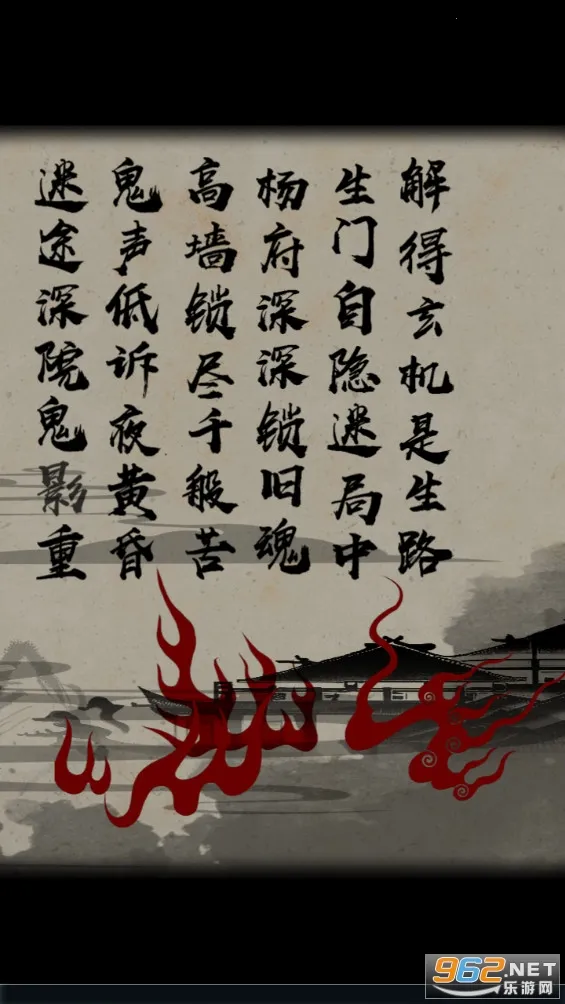 迷途深院鬼影重
鬼声低诉夜黄昏
高墙锁尽千般苦
杨府深深锁旧魂
生门自隐迷局中
解得玄机是生路
962.NET
乐游网